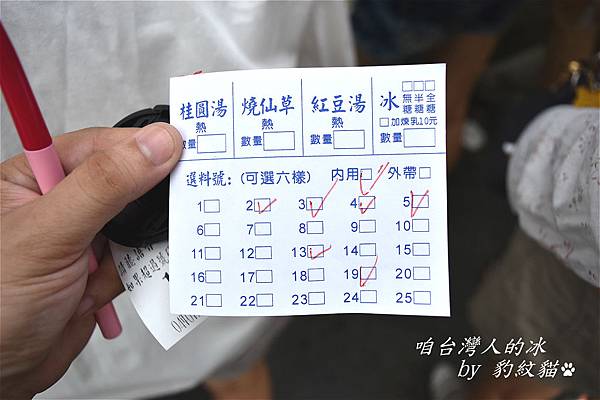 桂圓湯 燒仙草 紅豆湯 冰
熱 熱 熱 無糖 半糖 全糖
數量 數量 數量 加煉乳10元
數量
選料號:(可選六樣) 内用 外帶
1 2 3 4 5
6 7 8 9 10
11 12 13 14 15
16 17 18 19 20
21 22 23 24 25
咱台灣人的冰
by 豹紋貓